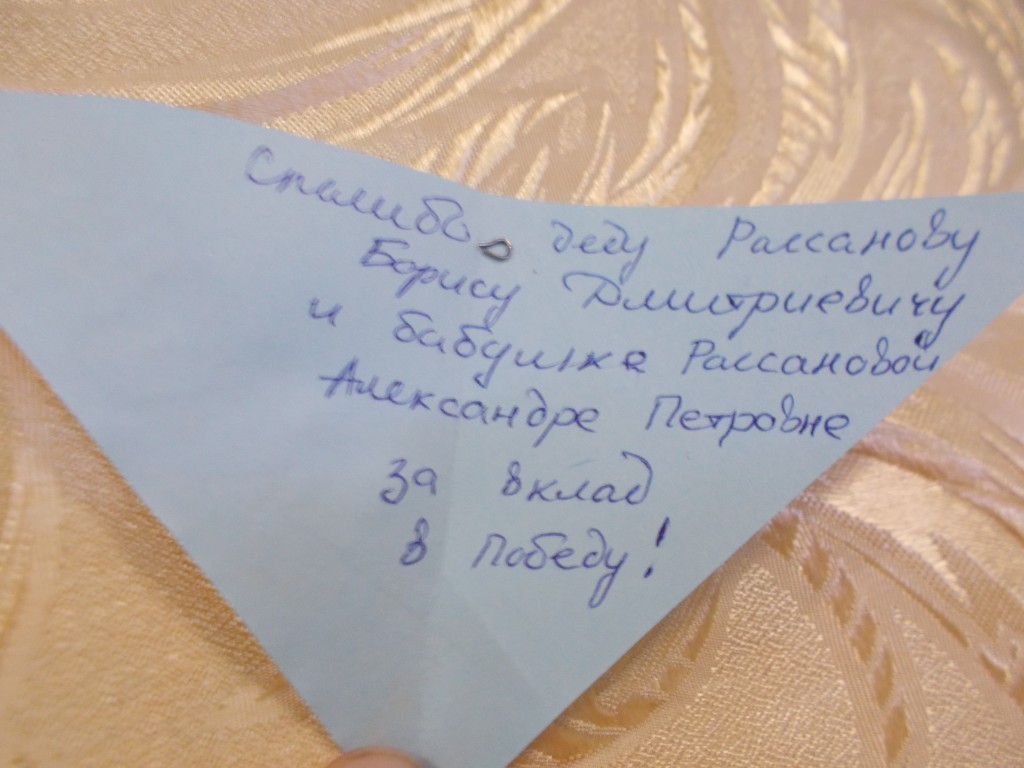 Спасибо деду Рассанову
Борису Дмитриевичу
и бабушке Рассановой
Александре Петровне
за вклад
в победу!